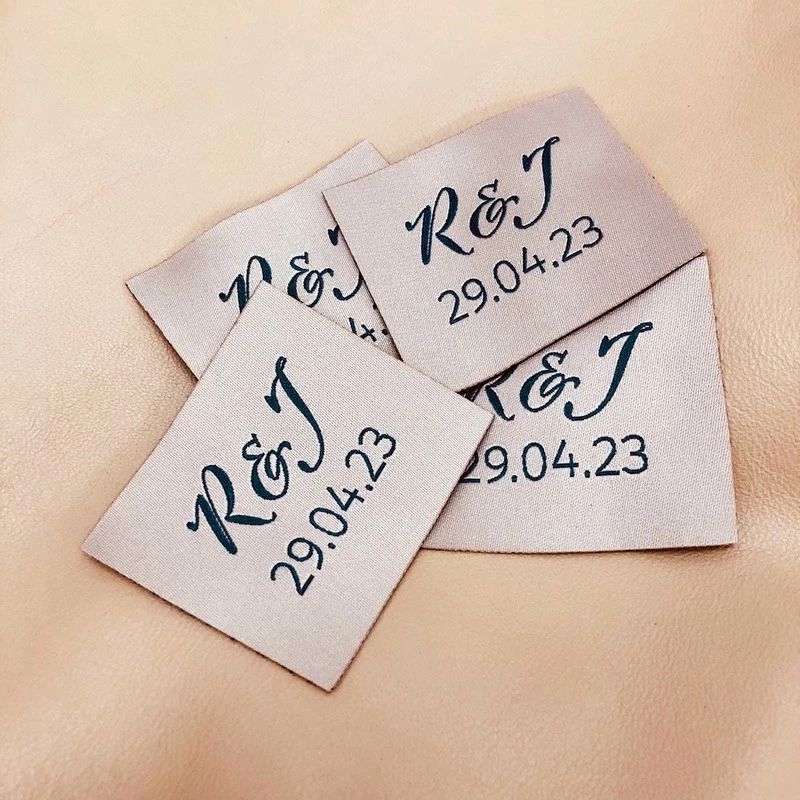 R&J
29.04.23
R&J
4.
R&J
29.04.23
R&J
29.04.23